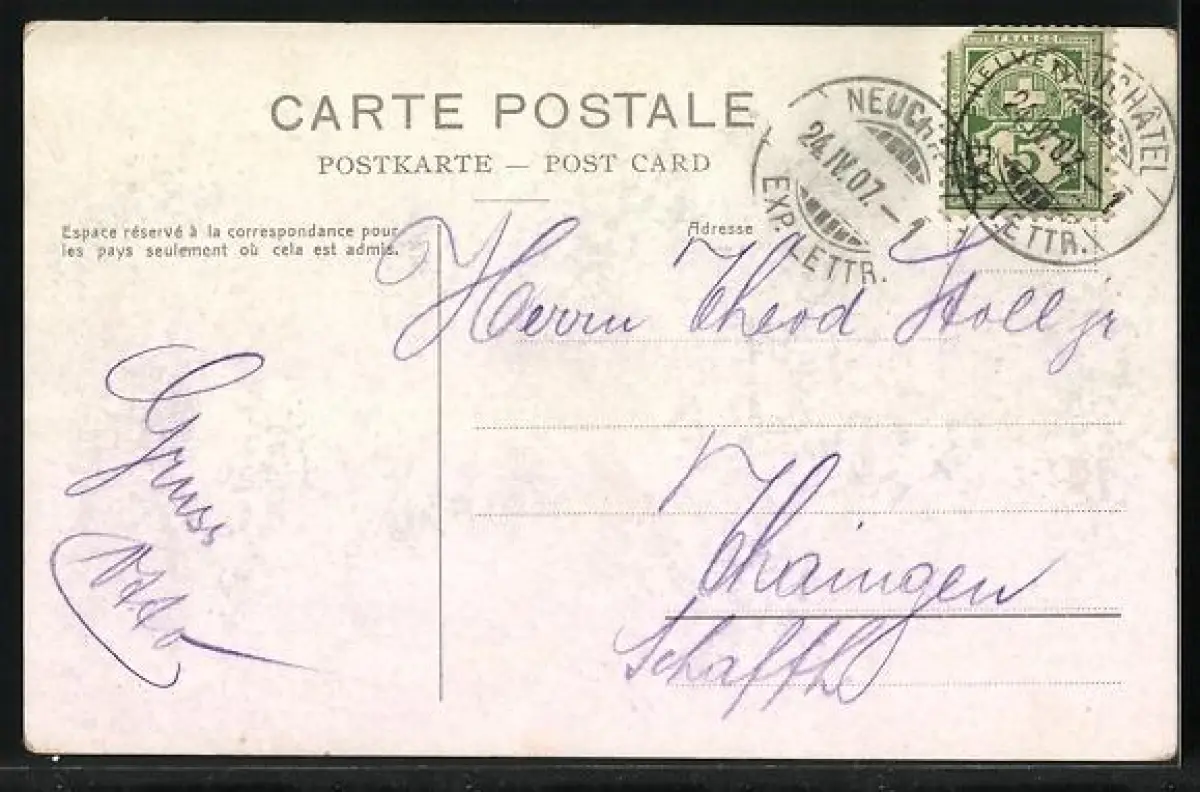 CARTE POSTALE
POSTKARTE — POST CARD
Espace réservé à la correspondance pour
les pays seulement où cela est admis.
Adresse
FRANCO
HELVETIA
5
NEUCHÂTEL
24.IV.07.–1
EXP. LETTR.
NEUCHÂTEL
24.IV.07.–1
EXP. LETTR.
Herrn Theod Stoll jr
Thaingen
Schaffh
Gruss
Otto